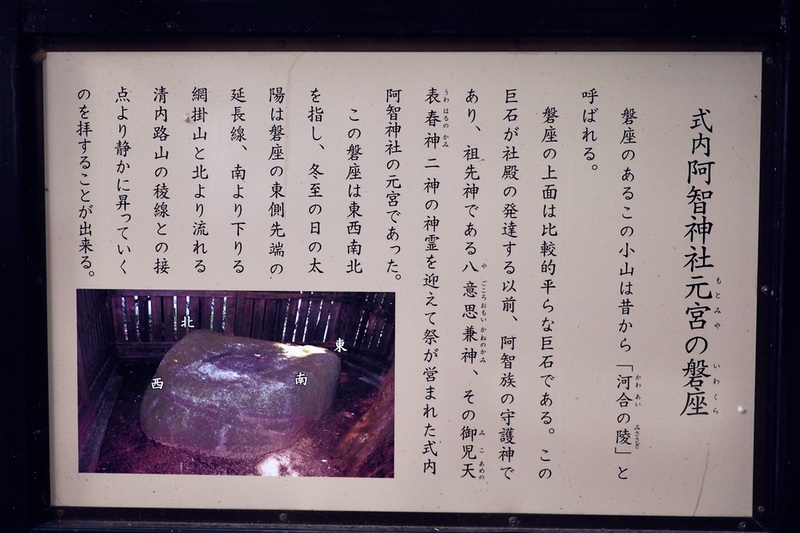 式内阿智神社元宮の磐座
もとみや
いわくら
磐座のあるこの小山は昔から「河合の陵」と
かわあい
みささぎ
呼ばれる。
磐座の上面は比較的平らな巨石である。この
巨石が社殿の発達する以前、阿智族の守護神で
あり、祖先神である八意思兼神、その御児天
やごころおもいかねのかみ
みこあめの
表春神二神の神霊を迎えて祭が営まれた式内
うわはるのかみ
阿智神社の元宮であった。
この磐座は東西南北
を指し、冬至の日の太
陽は磐座の東側先端の
延長線、南より下りる
網掛山と北より流れる
清内路山の稜線との接
点より静かに昇っていく
のを拝することが出来る。
北
東
西
南